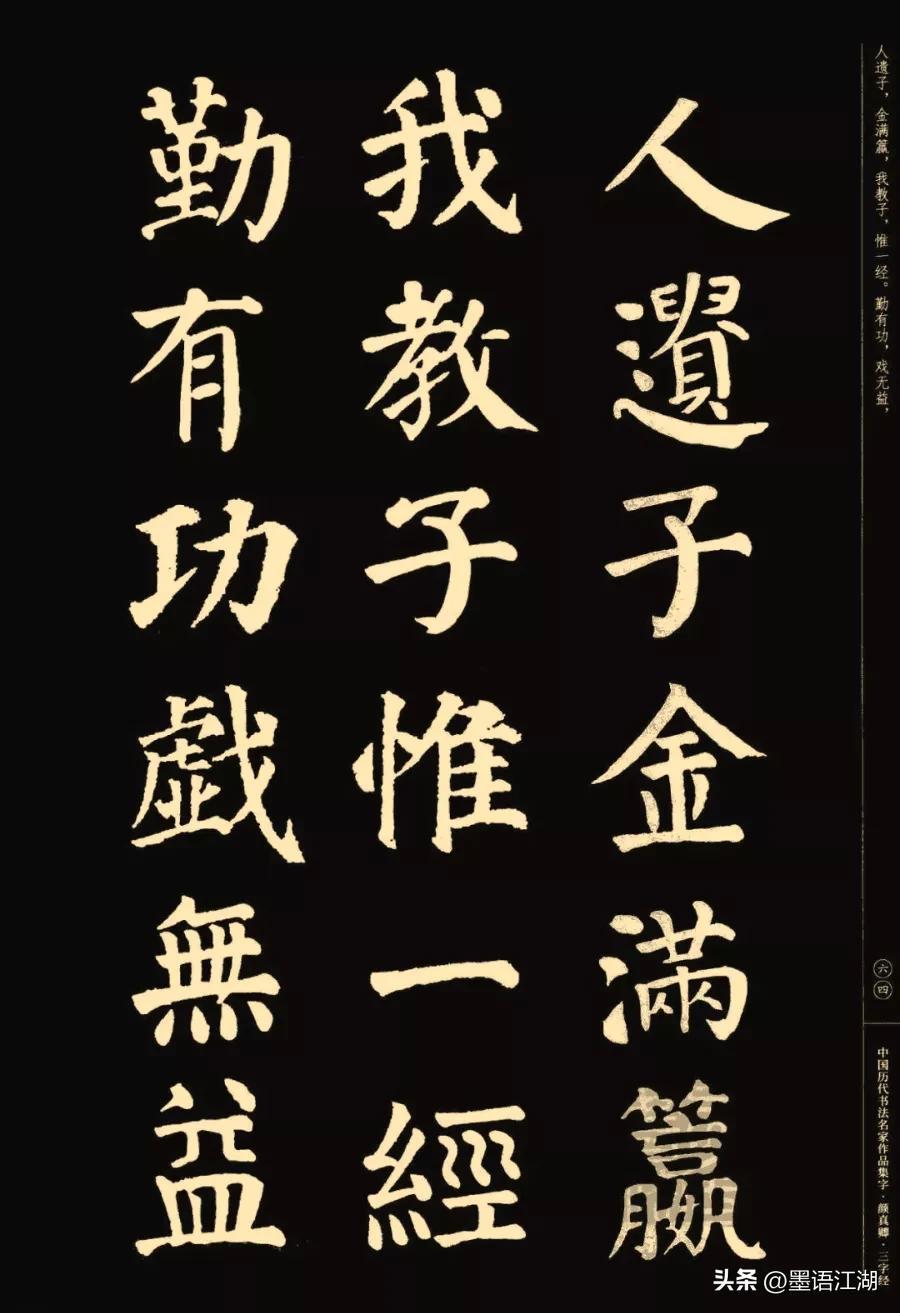 人遗子，金满籝，我教子，惟一经。勤有功，戏无益，
人遺子金滿籝
我教子惟一經
勤有功戯無益
六四
中国历代书法名家作品集字·颜真卿·三字经
头条 @墨语江湖